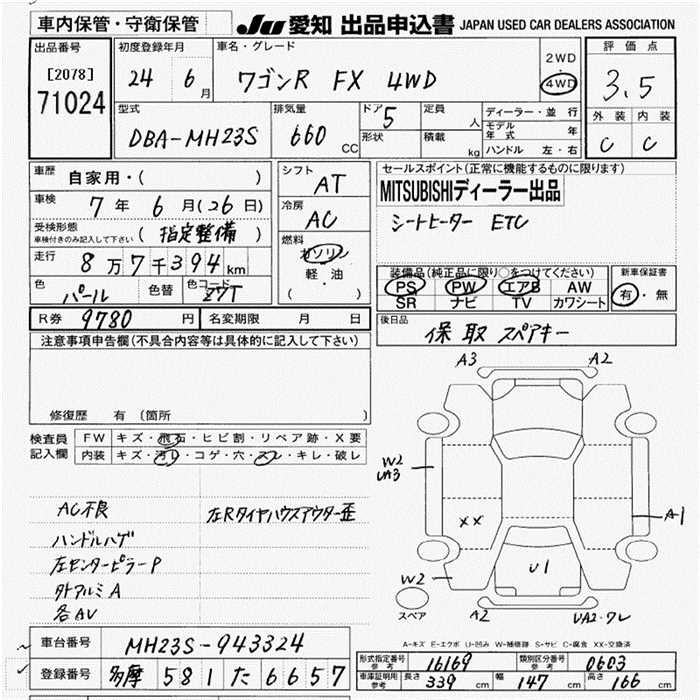 車内保管・守衛保管
JU 愛知 出品申込書 JAPAN USED CAR DEALERS ASSOCIATION
出品番号
[2078]
71024
初度登録年月
24 6月
車名・グレード
ワゴンR FX 4WD
2WD
4WD
評価点
3.5
外装 内装
C C
型式
DBA-MH23S
排気量
660 CC
ドア 5
形状
定員 人
積載 kg
ディーラー・並行
モデル年式 年
ハンドル 左・右
車歴 自家用・( )
車検 7年 6月(26日)
受検形態
車検付きのみ記入して下さい
(指定整備)
走行 8万7千394km
色 パール 色替 色コード Z7T
シフト
AT
冷房
AC
燃料
ガソリン
軽・油
( )
セールスポイント(正常に機能するものに限ります)
MITSUBISHIディーラー出品
シートヒーター ETC
装備品(純正品に限り○をつけてください)
PS PW エアB AW
SR ナビ TV カワシート
新車保証書
有・無
R券 9780円 名変期限 月 日
後日品
保 取 スペアキー
注意事項申告欄(不具合内容等は具体的に記入して下さい)
修復歴 有 (箇所
検査員記入欄
FW キズ・飛石・ヒビ割・リペア跡・X要
内装 キズ・汚レ・コゲ・穴・スレ・キレ・破レ
AC不良 左Rタイヤハウスアウター歪
ハンドルハゲ
左センターピラーP
外アルミA
各AV
A3 A2
W2
UA3
XX
A1
U1
W2
A2
UA2・ワレ
スペア
A-キズ E-エクボ U-凹み W-補修跡 S-サビ C-腐食 XX-交換済
車台番号 MH23S-943324
登録番号 多摩 581 た 6657
形式指定番号 参考 16169 類別区分番号 参考 0603
車庫証明用 参考 長さ 339 cm 幅 147 cm 高さ 166 cm